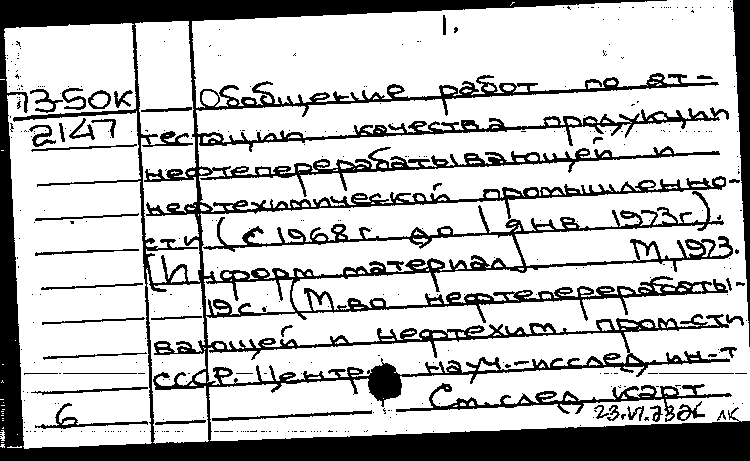 1.
73-50К
2147
Обобщение работ по ат-
тестации качества продукции
нефтеперерабатывающей и
нефтехимической промышленно-
сти (с 1968 г. до 1 янв. 1973 г.).
[Информ. материал]. М., 1973.
19 с. (М-во нефтеперерабаты-
вающей и нефтехим. пром-сти
СССР. Центр. науч.-исслед. ин-т
См. след. карт
6
ЛК